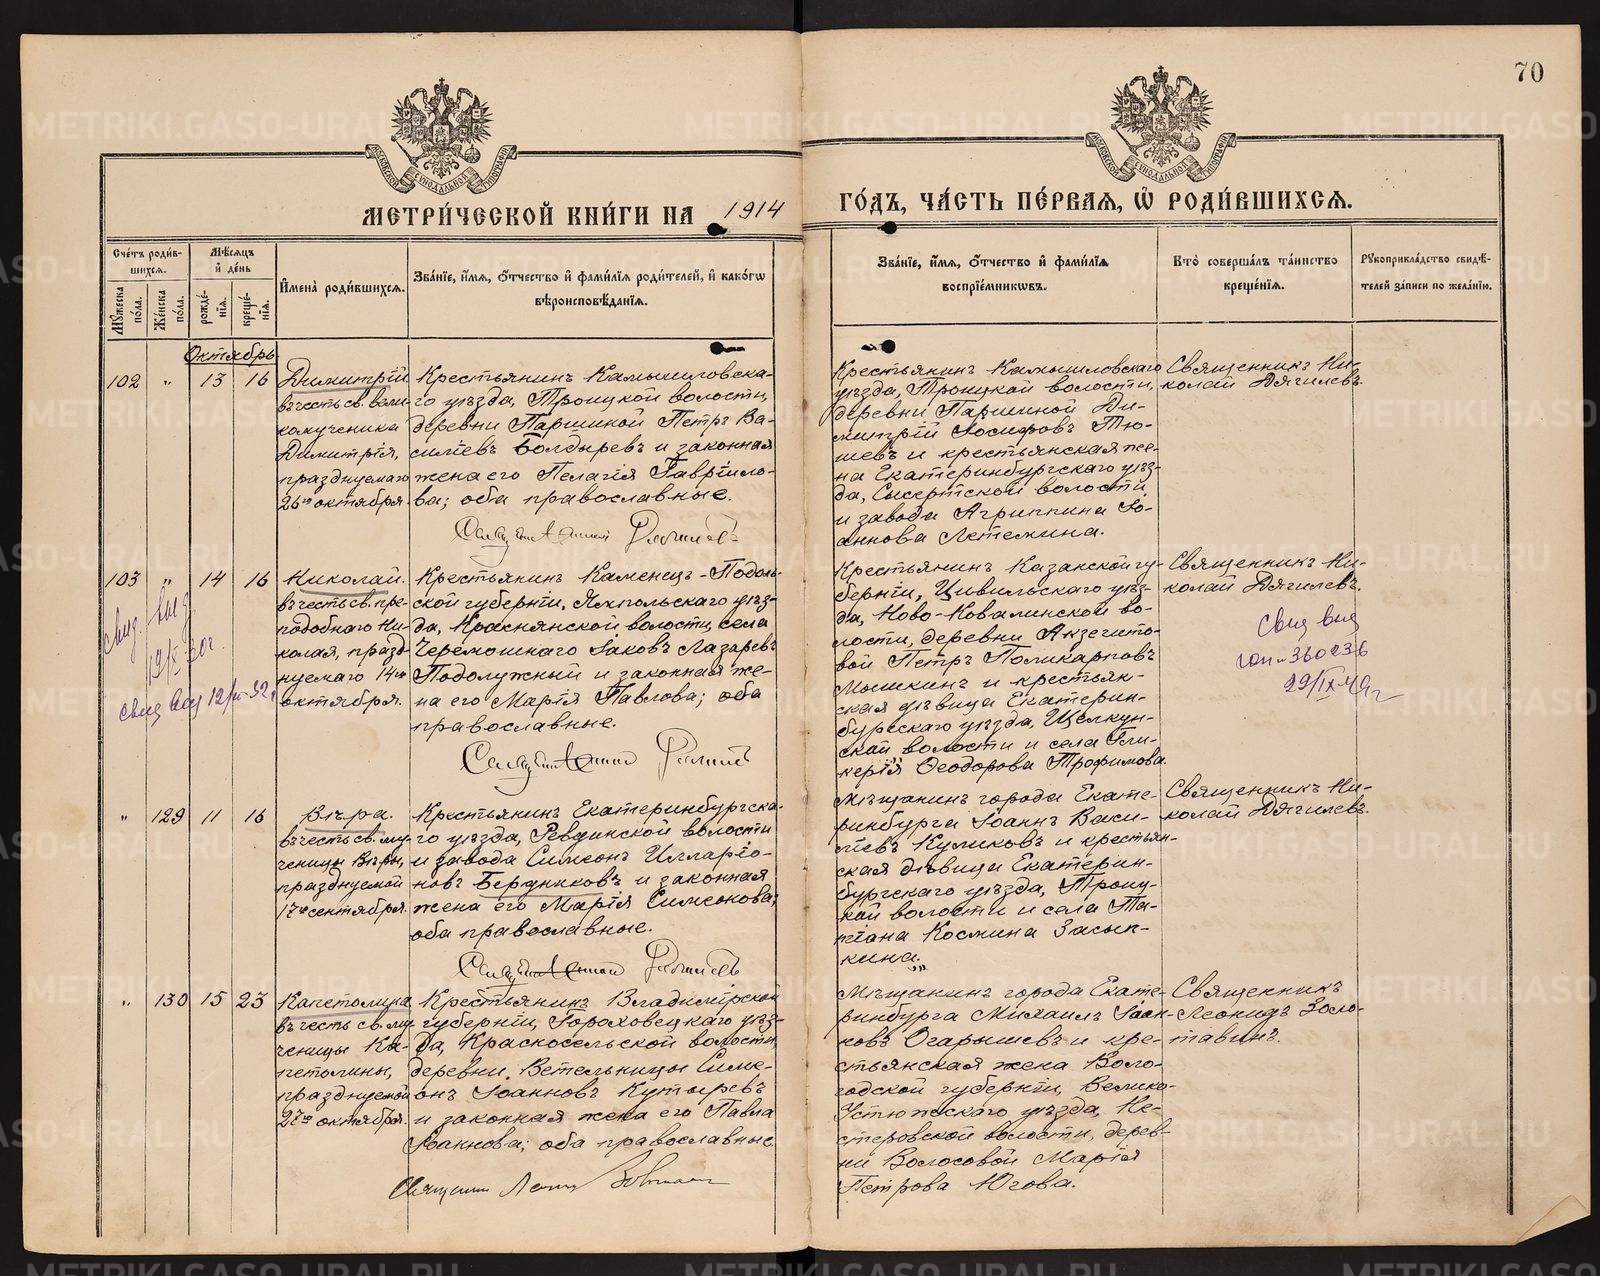 70
МЕТРИ́ЧЕСКОЙ КНИ́ГИ НА 1914
ГО́ДЪ, ЧА́СТЬ ПЕ́РВАЯ, Ѡ҆ РОДИ́ВШИХСЯ.
Сче́тъ роди́в-
шихся.
Мꙋ́жеска по́ла.
Же́нска по́ла.
Мѣ́сяцъ
и҆ де́нь
рожде́-
нїя.
креще́-
нїя.
И҆мена̀ роди́вшихся.
Зва́нїе, и҆́мя, ѻ҆́тчество и҆ фами́лїя роди́телей, и҆ како́гѡ
вѣроисповѣ́данїя.
Зва́нїе, и҆́мя, ѻ҆́тчество и҆ фами́лїя
воспрїе́мникѡвъ.
Кто̀ соверша́лъ та́инство
креще́нїя.
Рꙋкоприкла́дство свидѣ́-
телей за́писи по жела́нїю.
Октябрь
102 " 13 16
Димитрій
въ честь св. вели-
комученика
Димитрія,
празднуемаго
26го октября.
Крестьянинъ Камышловска-
го уѣзда, Троицкой волости,
деревни Паршиной Петръ Ва-
силіевъ Болдыревъ и законная
жена его Пелагія Гавріило-
ва; оба православные.
Крестьянинъ Камышловскаго
уѣзда, Троицкой волости,
деревни Паршиной Ди-
митрій Іосифовъ Тю-
шевъ и крестьянская же-
на Екатеринбургскаго уѣз-
да, Сысертской волости
и завода Агриппина Іо-
аннова Летемина.
Священникъ Ни-
колай Дягилевъ.
103 " 14 16
Николай.
въ честь св. пре-
подобнаго Ни-
колая, празд-
нуемаго 14го
октября.
Крестьянинъ Каменецъ-Подоль-
ской губерніи, Ямпольскаго уѣз-
да, Краснянской волости, села
Черемошнаго Іаковъ Лазаревъ
Подолужный и законная же-
на его Марія Павлова; оба
православные.
Крестьянинъ Казанской гу-
берніи, Цивильскаго уѣз-
да, Ново-Ковалинской во-
лости, деревни Анзегито-
вой Петръ Поликарповъ
Мышкинъ и крестьян-
ская дѣвица Екатерин-
бургскаго уѣзда, Щелкун-
ской волости и села Гли-
керія Ѳеодорова Трофимова.
Священникъ Ни-
колай Дягилевъ.
свид. выд
свид выд
360236
29/IX-49г
" 129 11 16
Вѣра.
въ честь св. му-
ченицы Вѣры,
празднуемой
17го сентября.
Крестьянинъ Екатеринбургска-
го уѣзда, Ревдинской волости
и завода Симеонъ Илларіо-
новъ Бердниковъ и законная
жена его Марія Симеонова;
оба православные.
Мѣщанинъ города Екате-
ринбурга Іоаннъ Васи-
ліевъ Куликовъ и крестьян-
ская дѣвица Екатерин-
бургскаго уѣзда, Троиц-
кой волости и села Та-
тіана Космина Засып-
кина.
Священникъ Ни-
колай Дягилевъ.
" 130 15 23
Капетолина
въ честь св. му-
ченицы Ка-
петолины,
празднуемой
27го октября.
Крестьянинъ Владимірской
губерніи, Гороховецкаго уѣз-
да, Красносельской волости,
деревни Ветельницы Симе-
онъ Іоанновъ Кутыревъ
и законная жена его Павла
Іоаннова; оба православные.
Мѣщанинъ города Екате-
ринбурга Михаилъ Іоан-
новъ Огарышевъ и кре-
стьянская жена Воло-
годской губерніи, Велико-
Устюжскаго уѣзда, Не-
стеровской волости, дерев-
ни Волосовой Марія
Петрова Югова.
Священникъ
Леонидъ Золо-
тавинъ.
METRIKI.GASO-URAL.RU